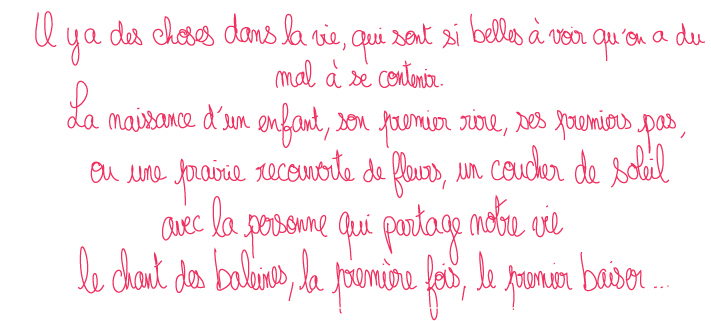 Il y a des choses dans la vie, qui sont si belles à voir qu'on a du
mal à se contenir.
La naissance d'un enfant, son premier rire, ses premiers pas,
ou une prairie recouverte de fleurs, un coucher de soleil
avec la personne qui partage notre vie
le chant des baleines, la première fois, le premier baiser...